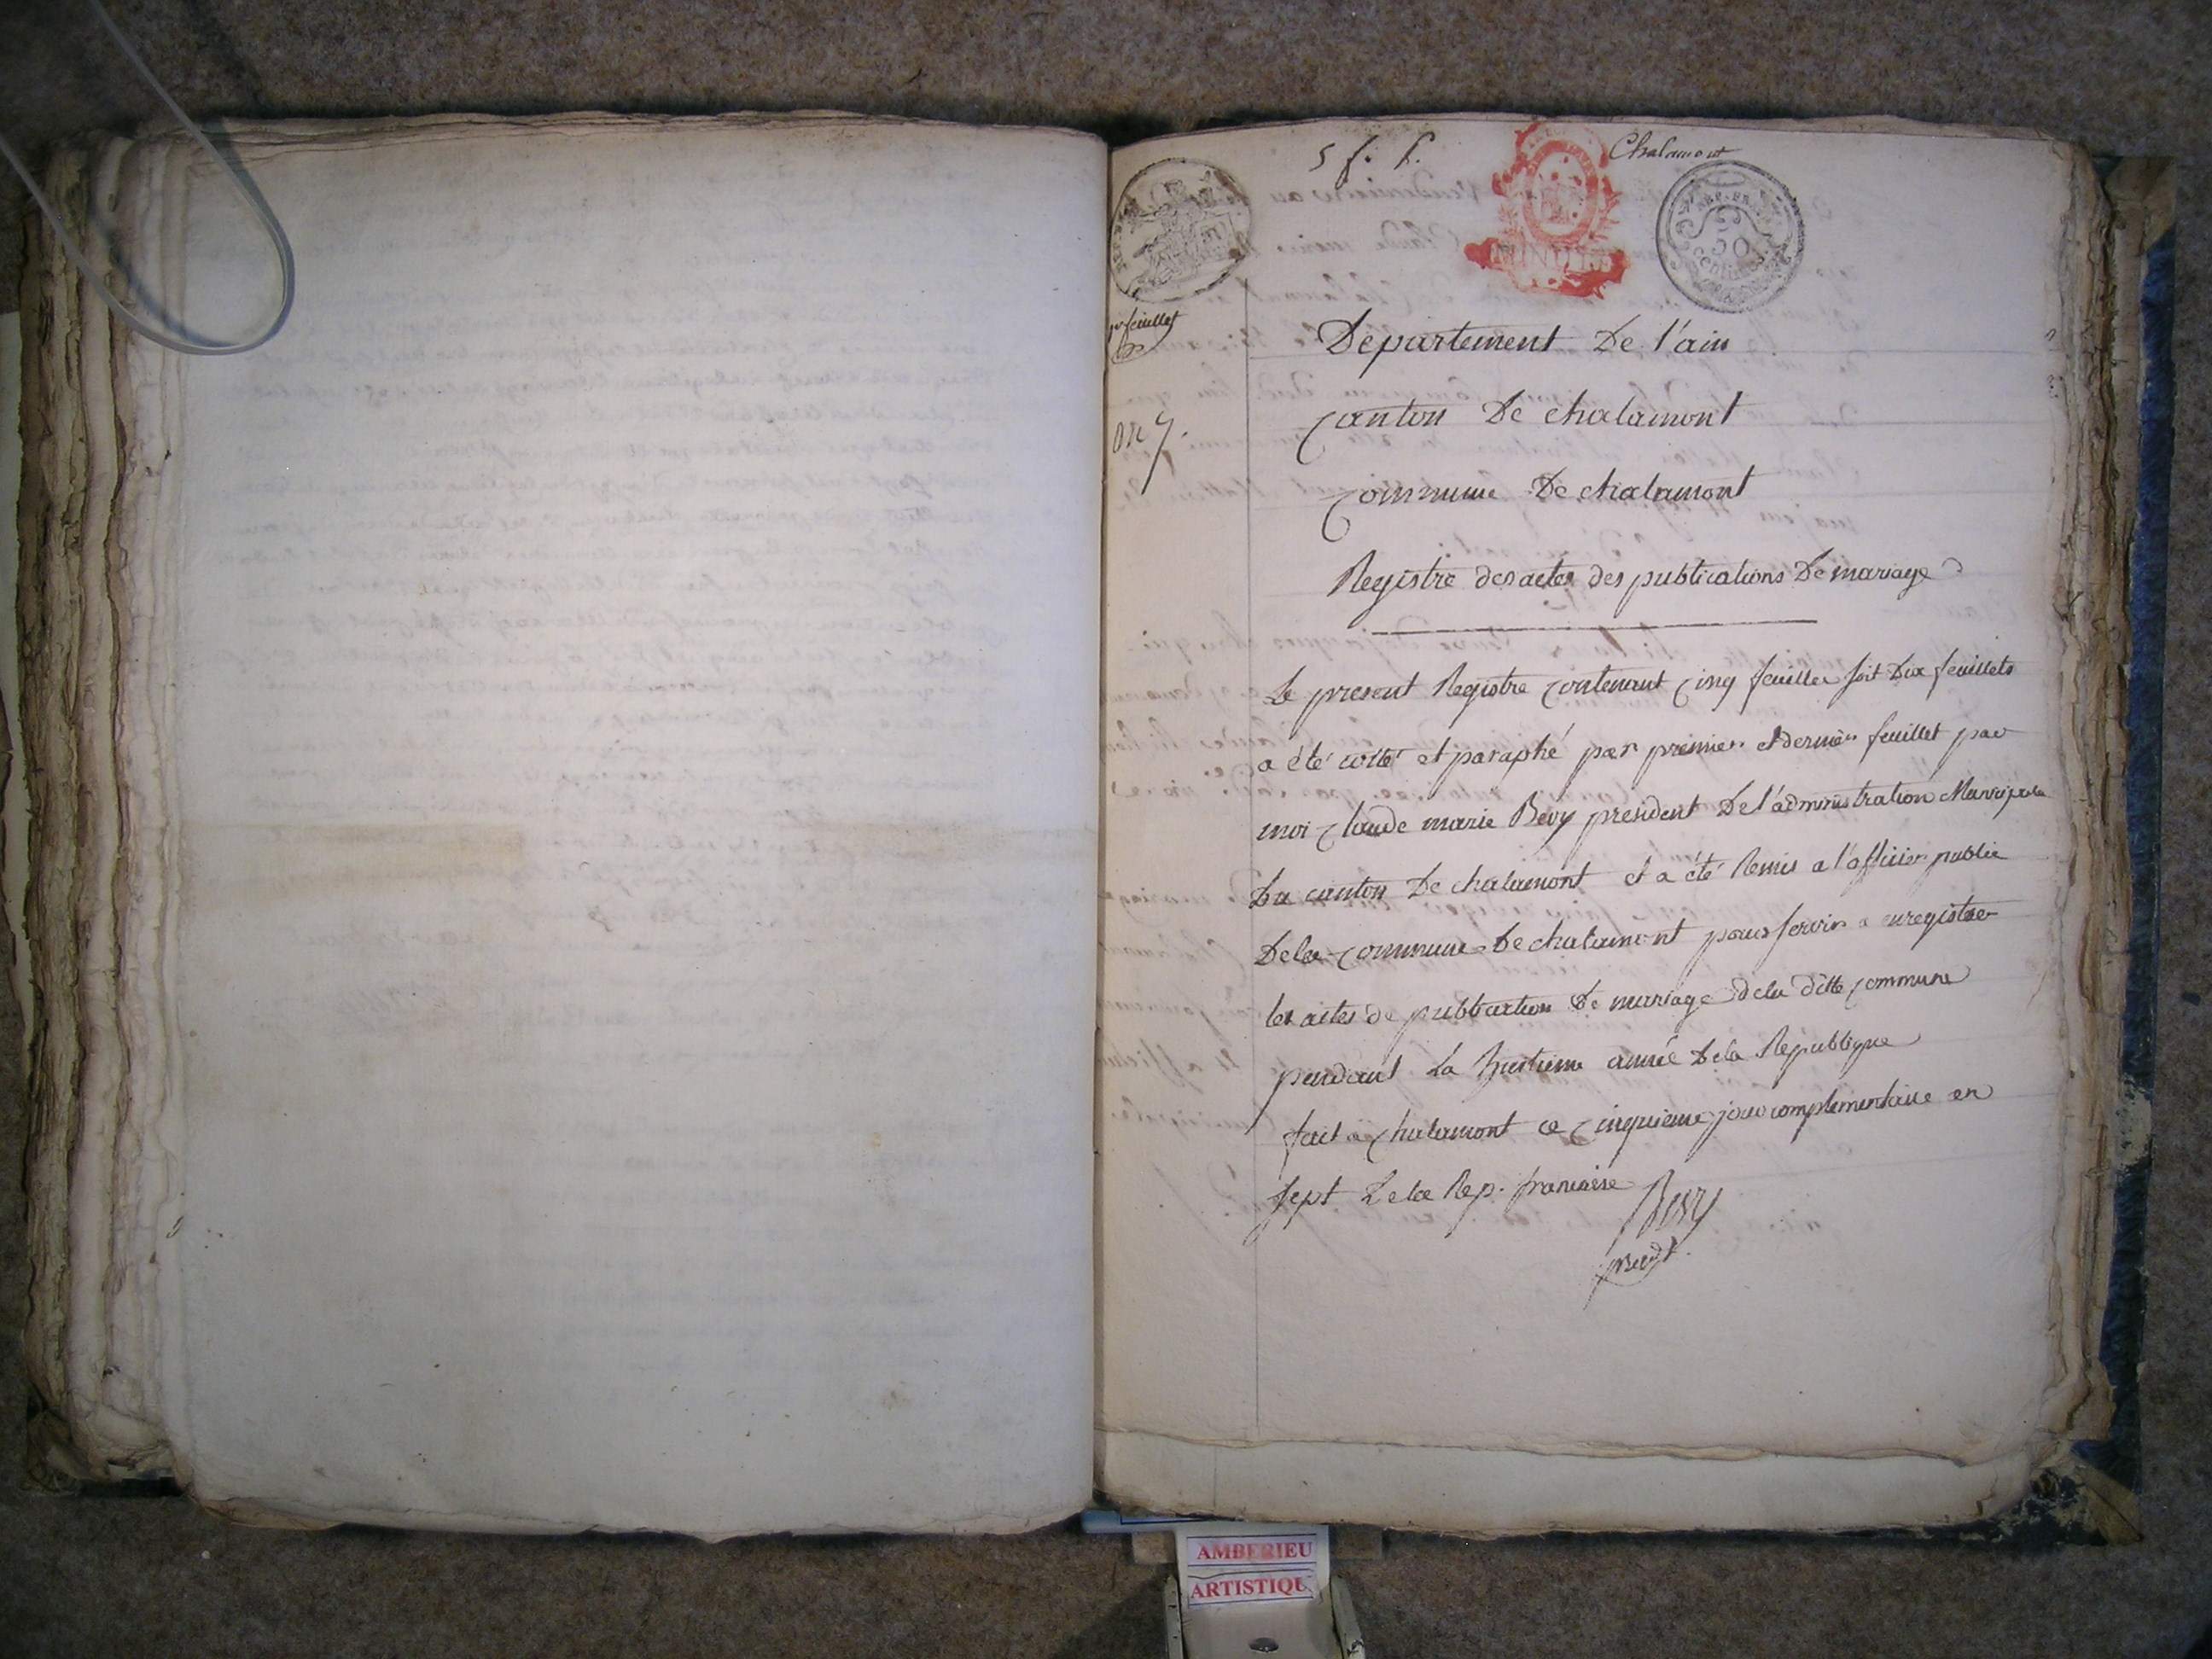 5 f. f.
Chalamont
REP. FRA
50
centimes
1er feuillet
an 7.
Departement De l'ain
Canton De chalamont
Commune De chalamont
Registre des actes des publications De mariage
Le present Registre Contenant Cinq feuilles soit Dix feuillets
a été cotté et paraphé par premier et dernier feuillet par
moi Claude marie Bevy president De l'administration Municipale
Du canton De chalamont et a été Remis a l'officier public
De la Commune De chalamont pour servir a enregistrer
les actes de publication De mariage de la ditte Commune
pendant La huitieme année De la Republique
fait a Chalamont ce Cinquieme jour complementaire en
sept De la Rep. francaise
Bevy
presdt.
AMBERIEU
ARTISTIQU